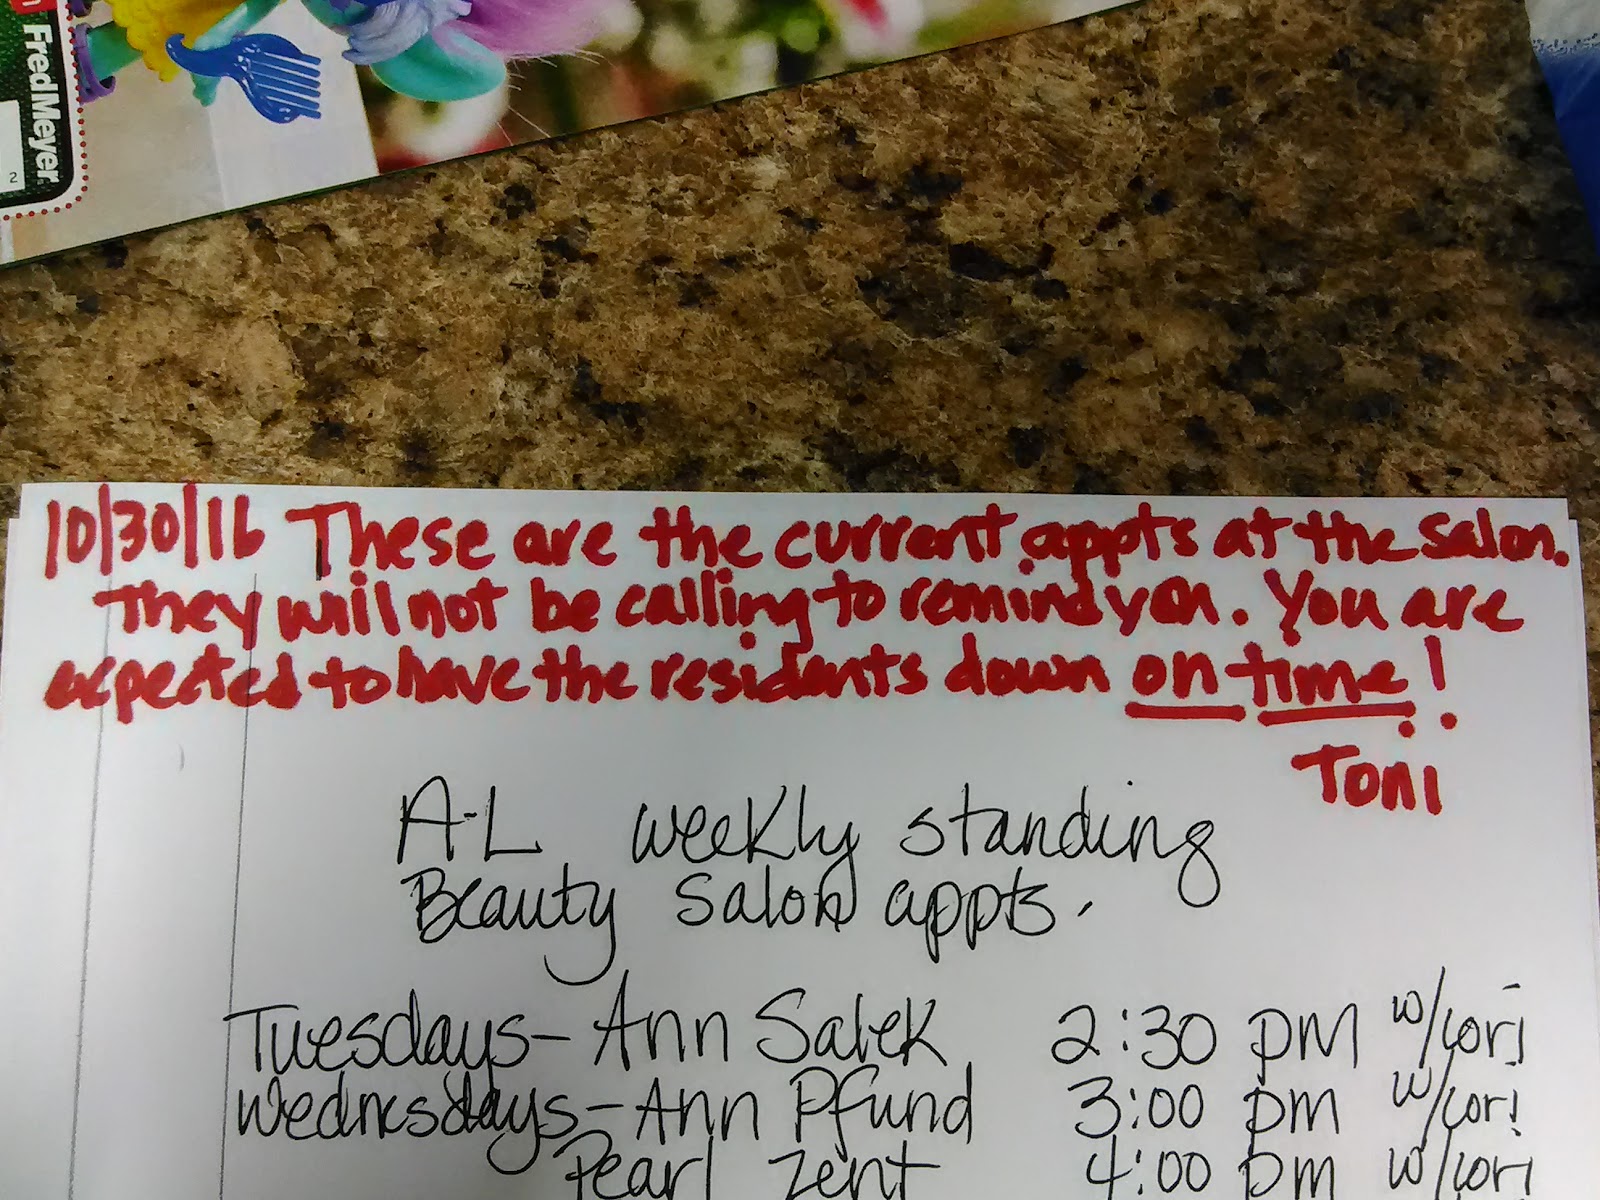 FredMeyer
2
10/30/16 These are the current appts at the salon.
They will not be calling to remind you. You are
expected to have the residents down on time!
Toni
A-L weekly standing
Beauty Salon appts.
Tuesdays- Ann Salek 2:30 pm w/Lori
Wednesdays- Ann Pfund 3:00 pm w/Lori
Pearl Zent 4:00 pm w/Lori